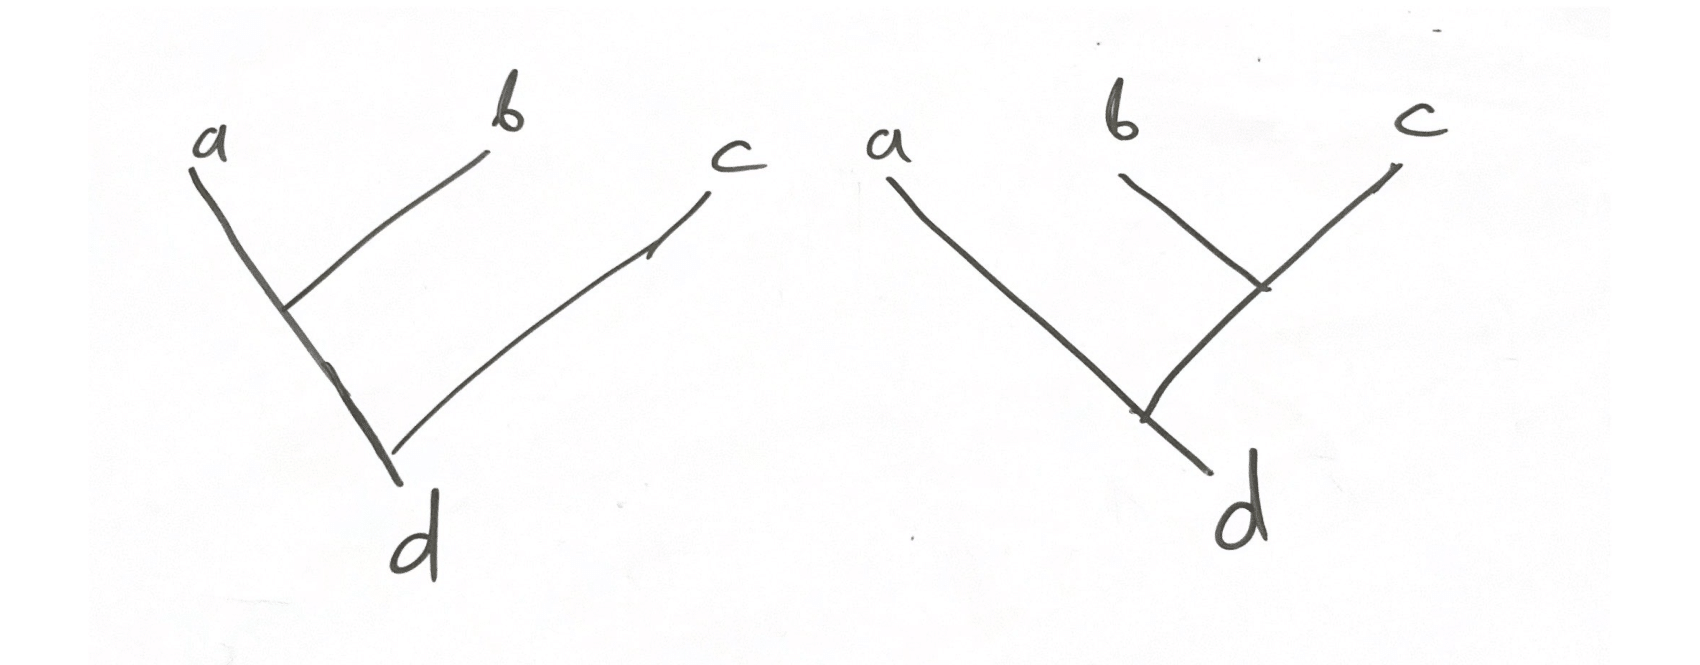 a b c
d
a b c
d